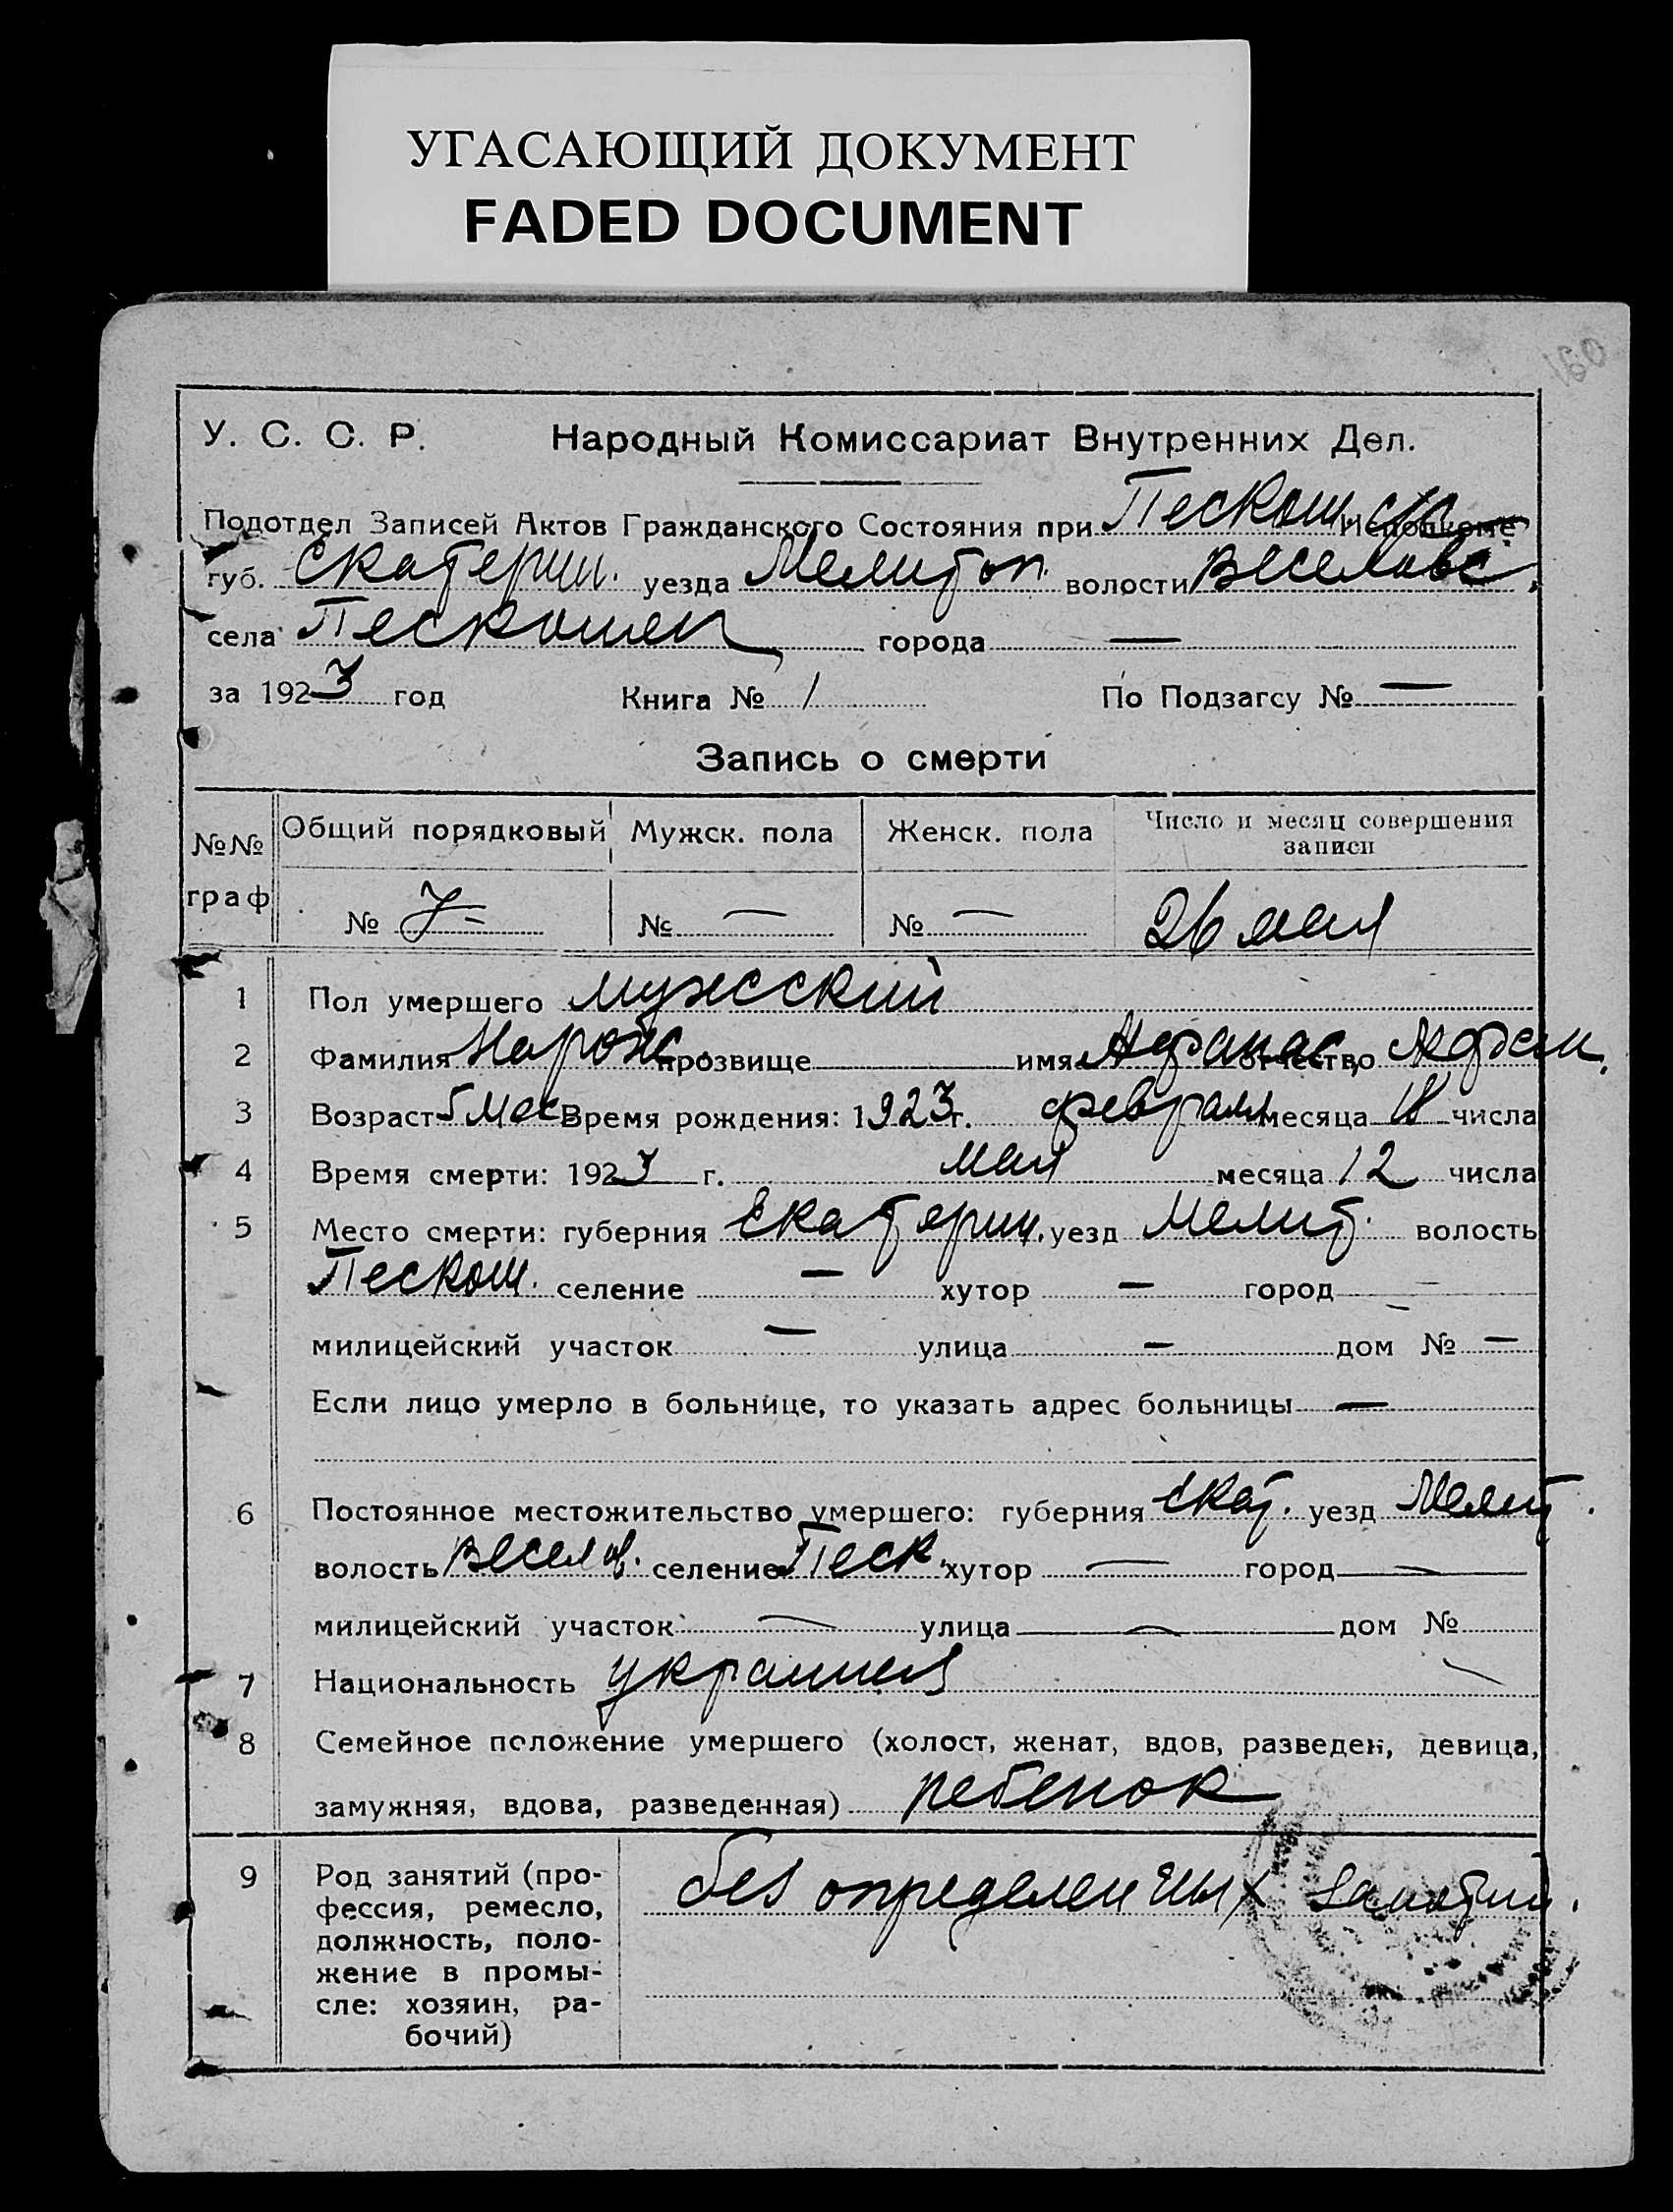 УГАСАЮЩИЙ ДОКУМЕНТ
FADED DOCUMENT
160
У. С. С. Р. Народный Комиссариат Внутренних Дел.
Подотдел Записей Актов Гражданского Состояния при Пескош. Исполкоме
губ. Екатерин. уезда Мелитоп. волости Веселовс.
села Пескошен города —
за 1923 год Книга № 1 По Подзагсу № —
Запись о смерти
№№ граф Общий порядковый Мужск. пола Женск. пола Число и месяц совершения записи
№ 7 № — № — 26 мая
1 Пол умершего мужсский
2 Фамилия прозвище имя Афанас. отчество
3 Возраст мес Время рождения: 1923 г. февраля месяца 18 числа
4 Время смерти: 1923 г. мая месяца 12 числа
5 Место смерти: губерния Екатерин. уезд Мелит. волость
Пескош. селение — хутор — город —
милицейский участок — улица — дом № —
Если лицо умерло в больнице, то указать адрес больницы —
6 Постоянное местожительство умершего: губерния Екат. уезд Мелит.
волость Весел. селение Песк. хутор — город —
милицейский участок — улица — дом №
7 Национальность
8 Семейное положение умершего (холост, женат, вдов, разведен, девица,
замужняя, вдова, разведенная) ребенок
9 Род занятий (про- без определенных занятий.
фессия, ремесло,
должность, поло-
жение в промы-
сле: хозяин, ра-
бочий)